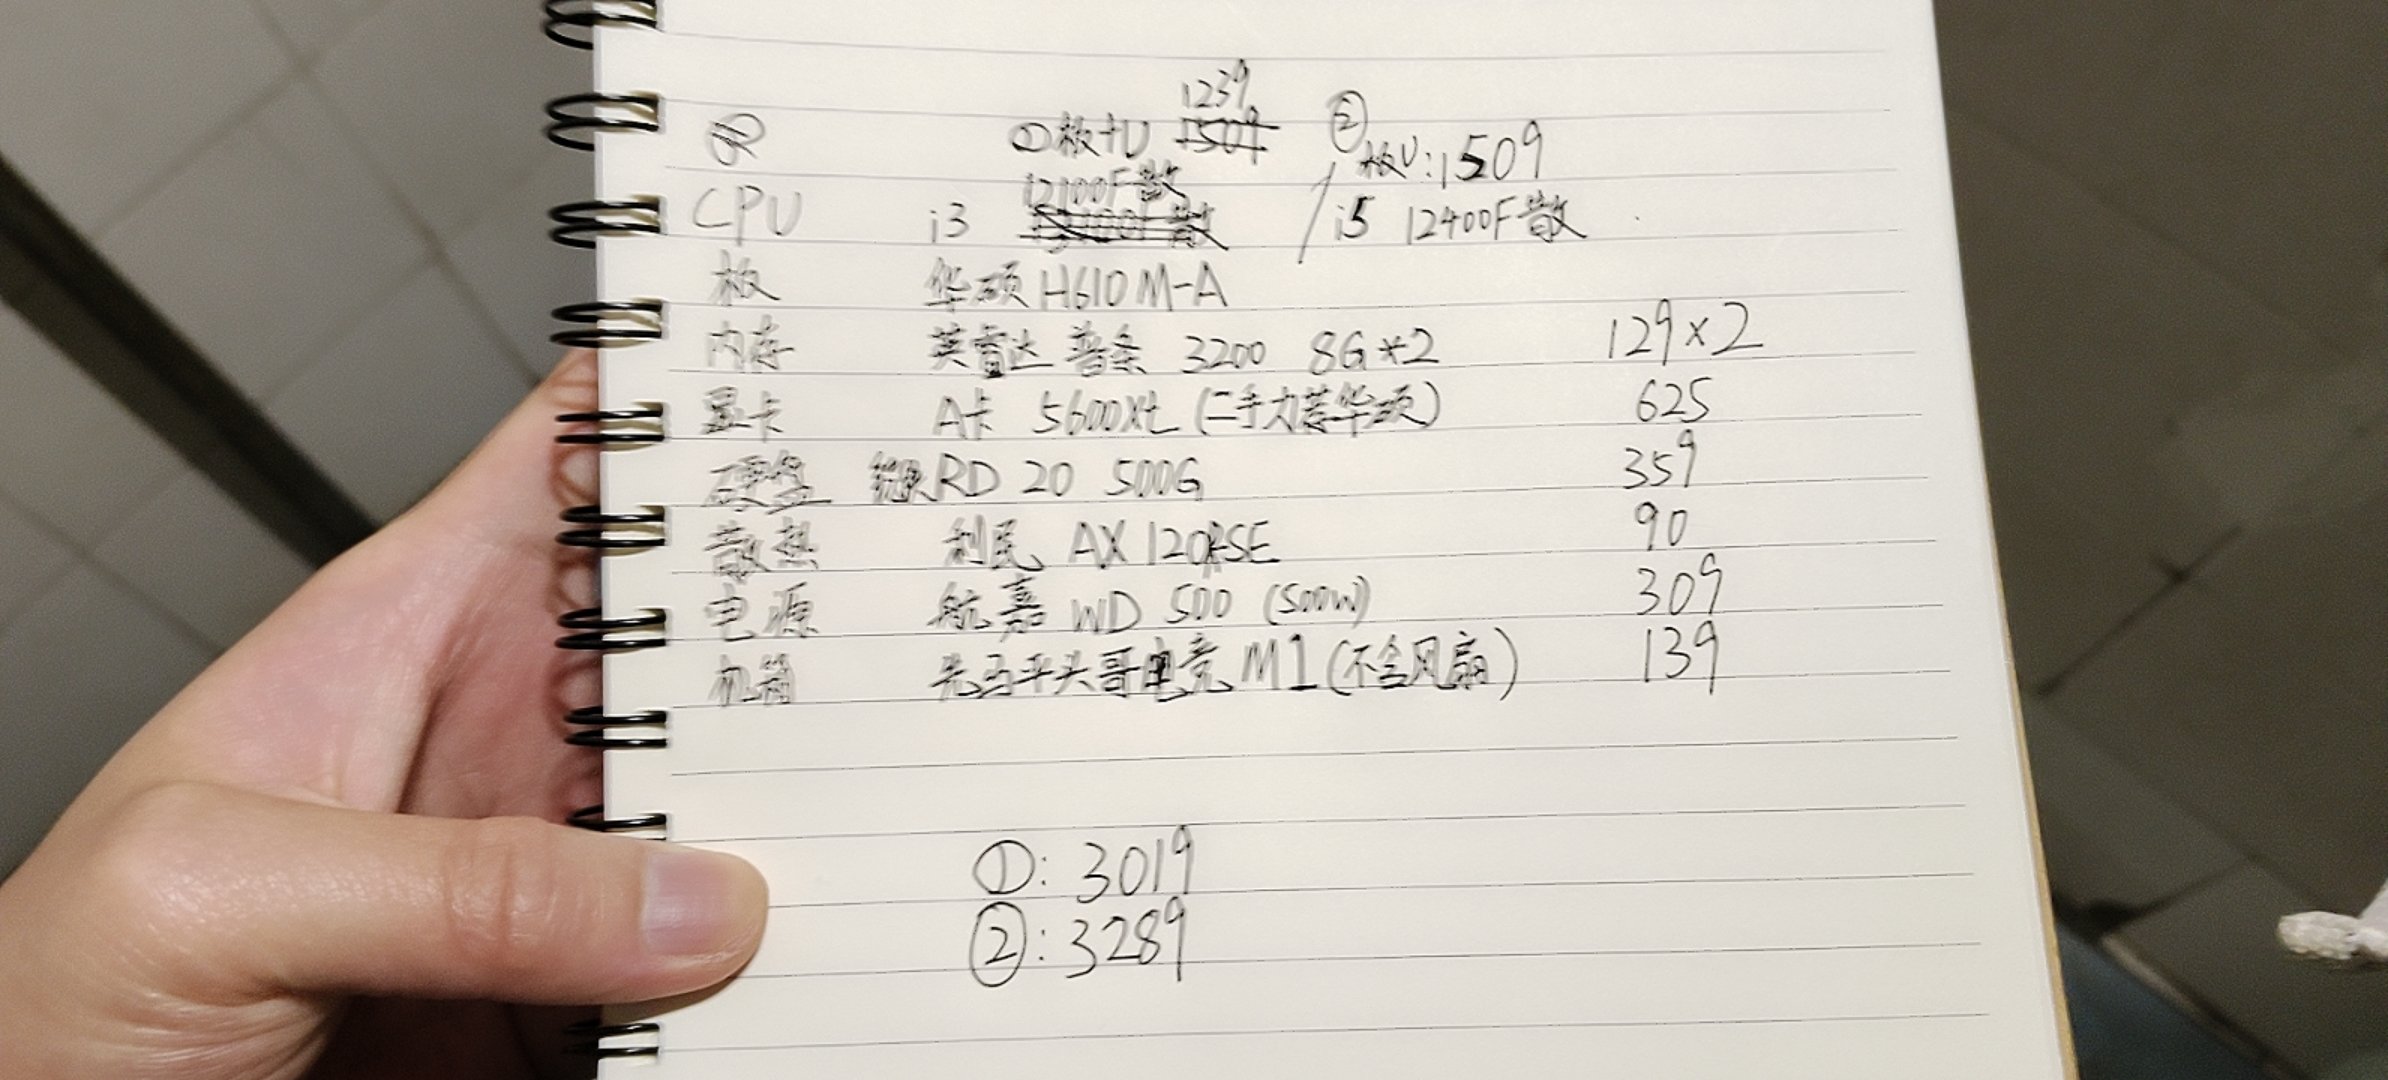 1239
①板+U 1509 ② 板U:1509
12100F散
CPU i3 / i5 12400F散
板 华硕 H610M-A
内存 英睿达 普条 3200 8G*2 129×2
显卡 A卡 5600xt (二手力荐华硕) 625
硬盘 RD 20 500G 359
散热 利民 AX 120RSE 90
电源 航嘉 WD 500 (500W) 309
机箱 先马平头哥电竞 M1(不含风扇) 139
①: 3019
②: 3289